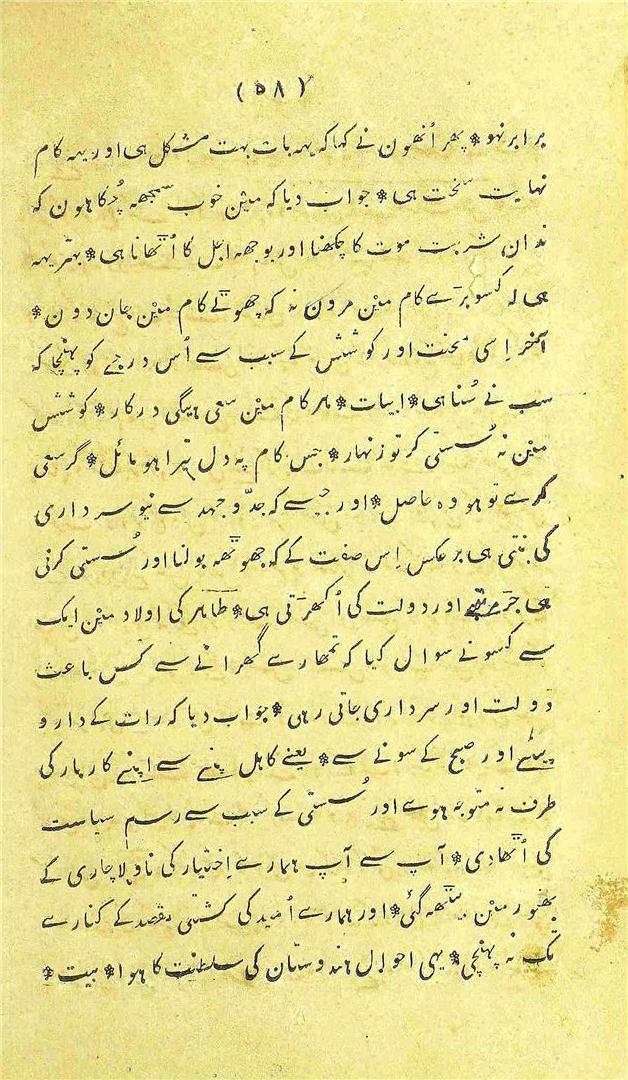 (۵۸)
برابر نہو * پھر اُنھون نے کہا کہ یہہ بات بہت مشکل ہی اور یہہ کام
نہایت سخت ہی * جواب دیا کہ میْن خوب سمجھہ چُکا ہون کہ
ندان شربت موت کا چکھنا اور بوجھہ اجل کا اُتھانا ہی * بہتر یہہ
ہی کہ کسو برَے کام میْن مرون نہ کہ چھوتے کام میْن جان دون *
آخر اِسی محنت اور کوشش کے سبب سے اُس درجے کو پہنچا کہ
سب نے سُنا ہی * ابیات * ہر کام میْن سعی ہیگی درکار * کوشش
میْن نہ سُستی کر تو زنہار * جس کام پہ دل تیرا ہو مائل * گر سعی
کرے تو ہو وہ حاصل * اور جیسے کہ جدّ و جہد سے نیو سرداری
کی بنتی ہی برعکس اِس صفت کے کہ جھوتھہ بولنا اور سُستی کرنی
ہی جرَ مرتبے اور دولت کی اُکھرَتی ہی * طاہر کی اولاد میْن ایک
سے کسو نے سوال کیا کہ تمھارے گھرانے سے کس باعث
دولت اور سرداری جاتی رہی * جواب دیا کہ رات کے دارو
پینے اور صبح کے سونے سے * یعنے کاہل پنے سے اپنے کاربار کی
طرف نہ متوجہ ہوے اور سُستی کے سبب سے رسم سیاست
کی اُتھادی * آپ سے آپ ہمارے اِختیار کی ناو لاچاری کے
بھنور میْن بیتھہ گئی * اور ہمارے اُمید کی کشتی مقصد کے کنارے
تک نہ پہنچی * یہی احوال ہندوستان کی سلطنت کا ہوا * بیت *